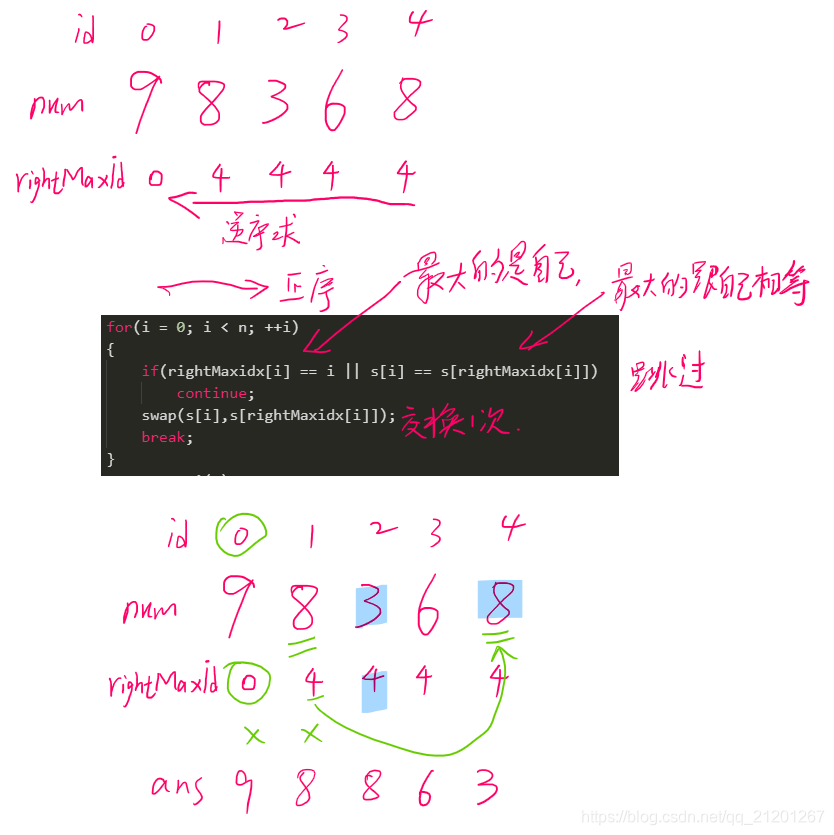 id 0 1 2 3 4
num 9 8 3 6 8
rightMaxId 0 4 4 4 4
逆序求
正序
最大的是自己,
最大的跟自己相等
for(i = 0; i < n; ++i)
{
if(rightMaxidx[i] == i || s[i] == s[rightMaxidx[i]])
跳过
continue;
swap(s[i],s[rightMaxidx[i]]);
交换1次.
break;
}
id 0 1 2 3 4
num 9 8 3 6 8
rightMaxId 0 4 4 4 4
× ×
ans 9 8 8 6 3
https://blog.csdn.net/qq_21201267